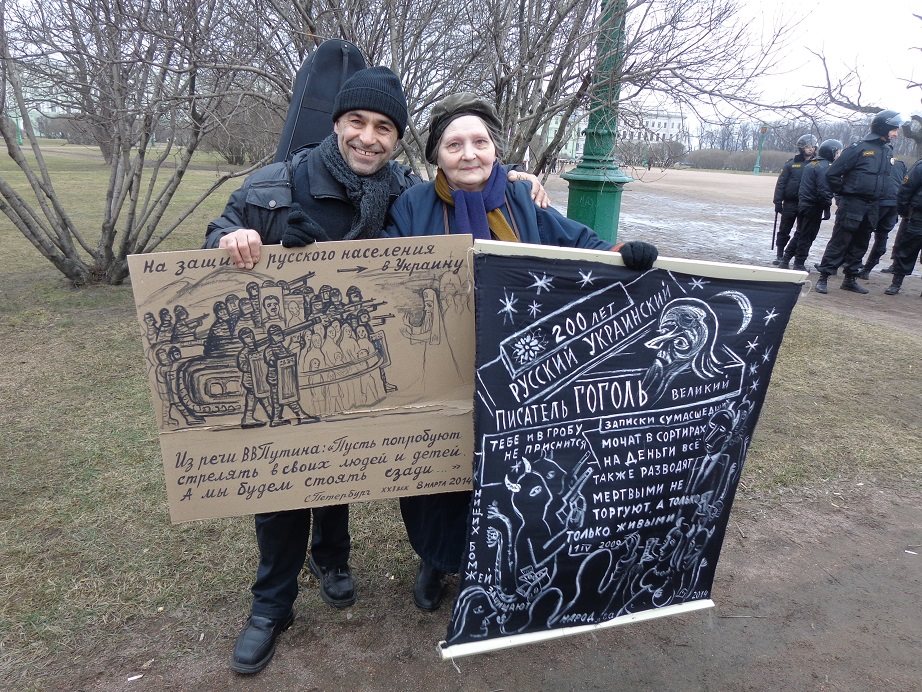 На защиту русского населения
в Украину
Из речи ВВПутина: «Пусть попробуют
стрелять в своих людей и детей.
А мы будем стоять сзади...»
С.Петербург XXI век 8 марта 2014
200 ЛЕТ
РУССКИЙ УКРАИНСКИЙ
ПИСАТЕЛЬ ГОГОЛЬ ВЕЛИКИЙ
ТЕБЕ И В ГРОБУ
НЕ ПРИСНИТСЯ
ЗАПИСКИ СУМАСШЕД
МОЧАТ В СОРТИРАХ
НА ДЕНЬГИ ВСЁ
ТАКЖЕ РАЗВОДЯТ
МЕРТВЫМИ НЕ
ТОРГУЮТ, А ТОЛЬКО
ТОЛЬКО ЖИВЫМИ
1 IV 2009
НИЩИХ БОМЖЕЙ
НАРОД
2014